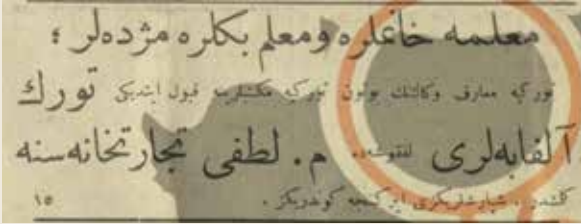 معلمه خانملره ومعلم بكلره مژده‌لر ؛
توركيه معارف وكالتنك بوتون توركيه مكتبلرينه قبول ايتديكى تورك
آلفابه‌لرى لفقوشه‌ده م. لطفى تجارتخانه‌سنه
كلشدر. سپارشلريكزى ايركنجه كوندريكز .
١٥